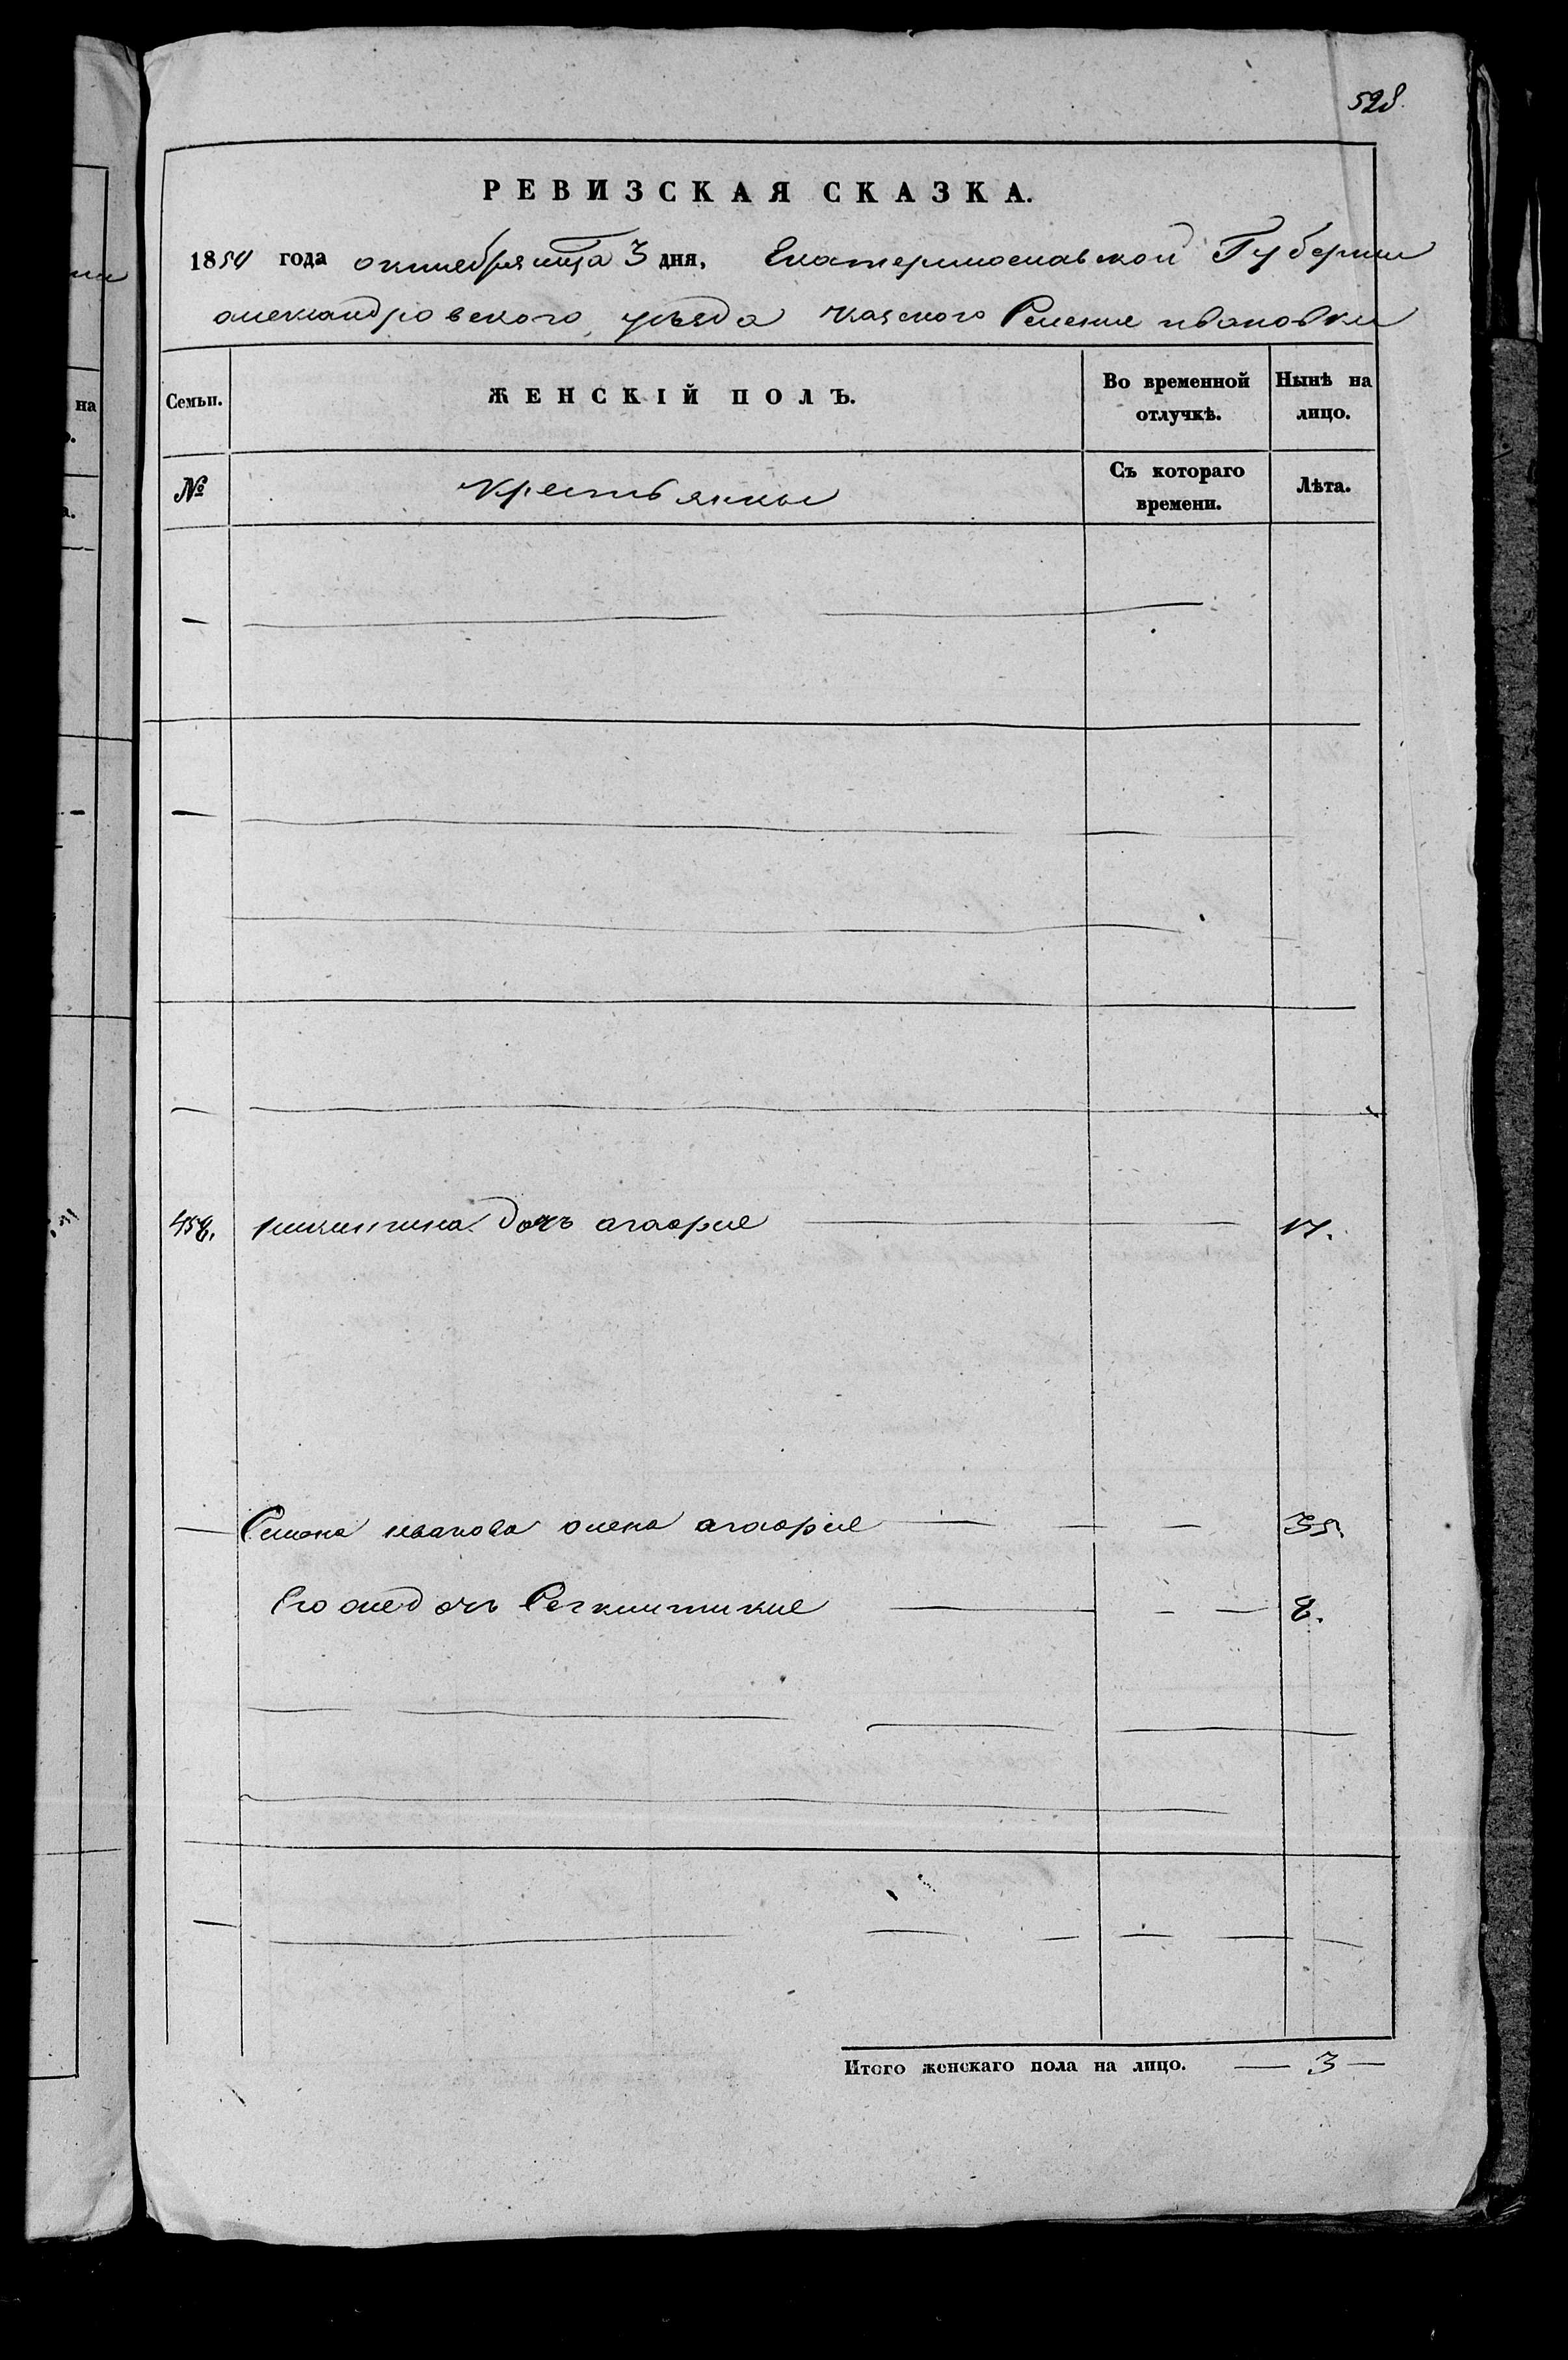 528.
РЕВИЗСКАЯ СКАЗКА.
1854 года октиебря мца 3 дня, Екатериославской Губернии
александровского, уезда казеного Селение ивановки
Семьи. ЖЕНСКІЙ ПОЛЪ. Во временной отлучкѣ. Нынѣ на лицо.
№ крестьянки Съ котораго времени. Лѣта.
458. дочъ агафие 17.
Семена иванова жена агафие 35.
Его же дочъ 8.
Итого женскаго пола на лицо. 3
на